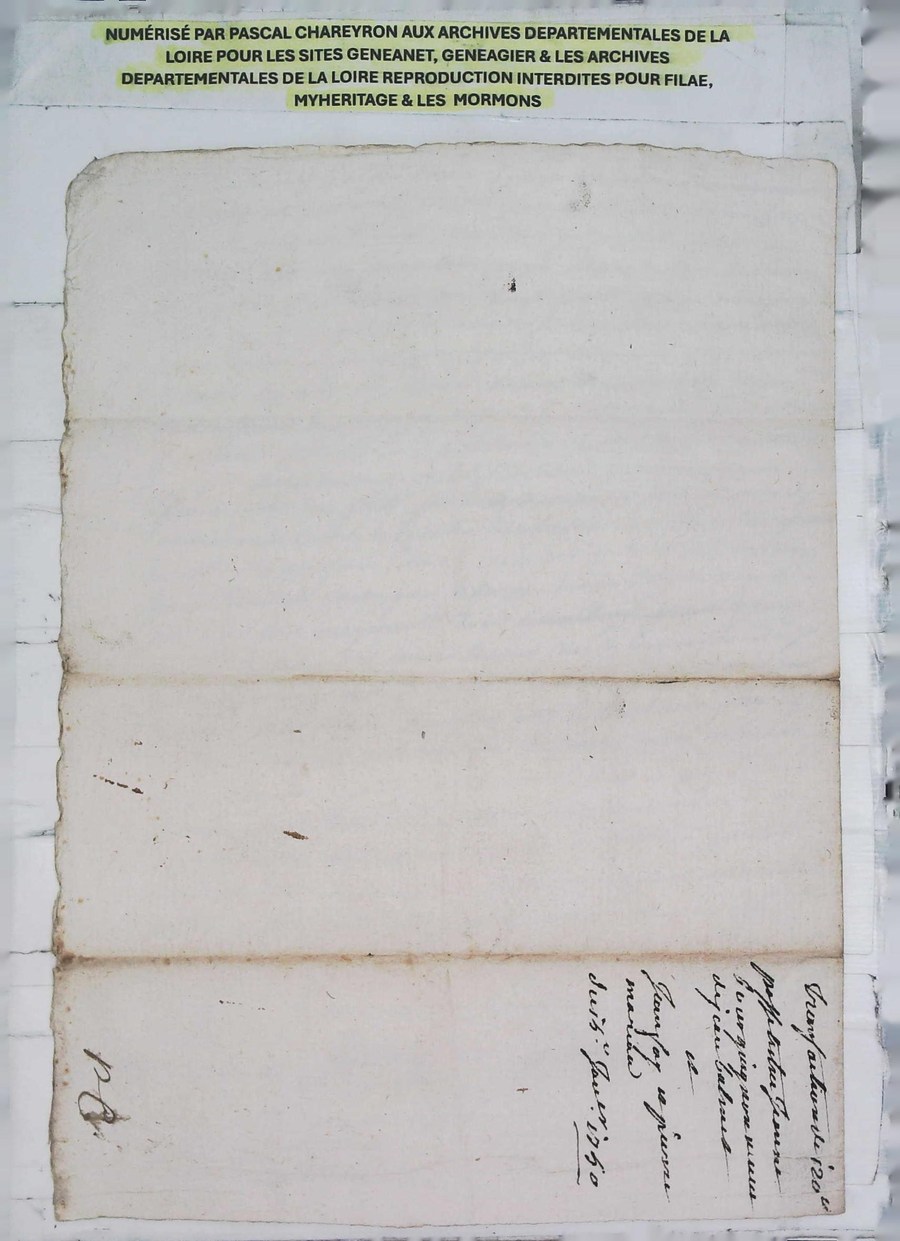 NUMÉRISÉ PAR PASCAL CHAREYRON AUX ARCHIVES DEPARTEMENTALES DE LA
LOIRE POUR LES SITES GENEANET, GENEAGIER & LES ARCHIVES
DEPARTEMENTALES DE LA LOIRE REPRODUCTION INTERDITES POUR FILAE,
MYHERITAGE & LES MORMONS
Transaction de 120
bourguignon veuve
de jean
et
françois pierre
du 15.e Janv.er 1760